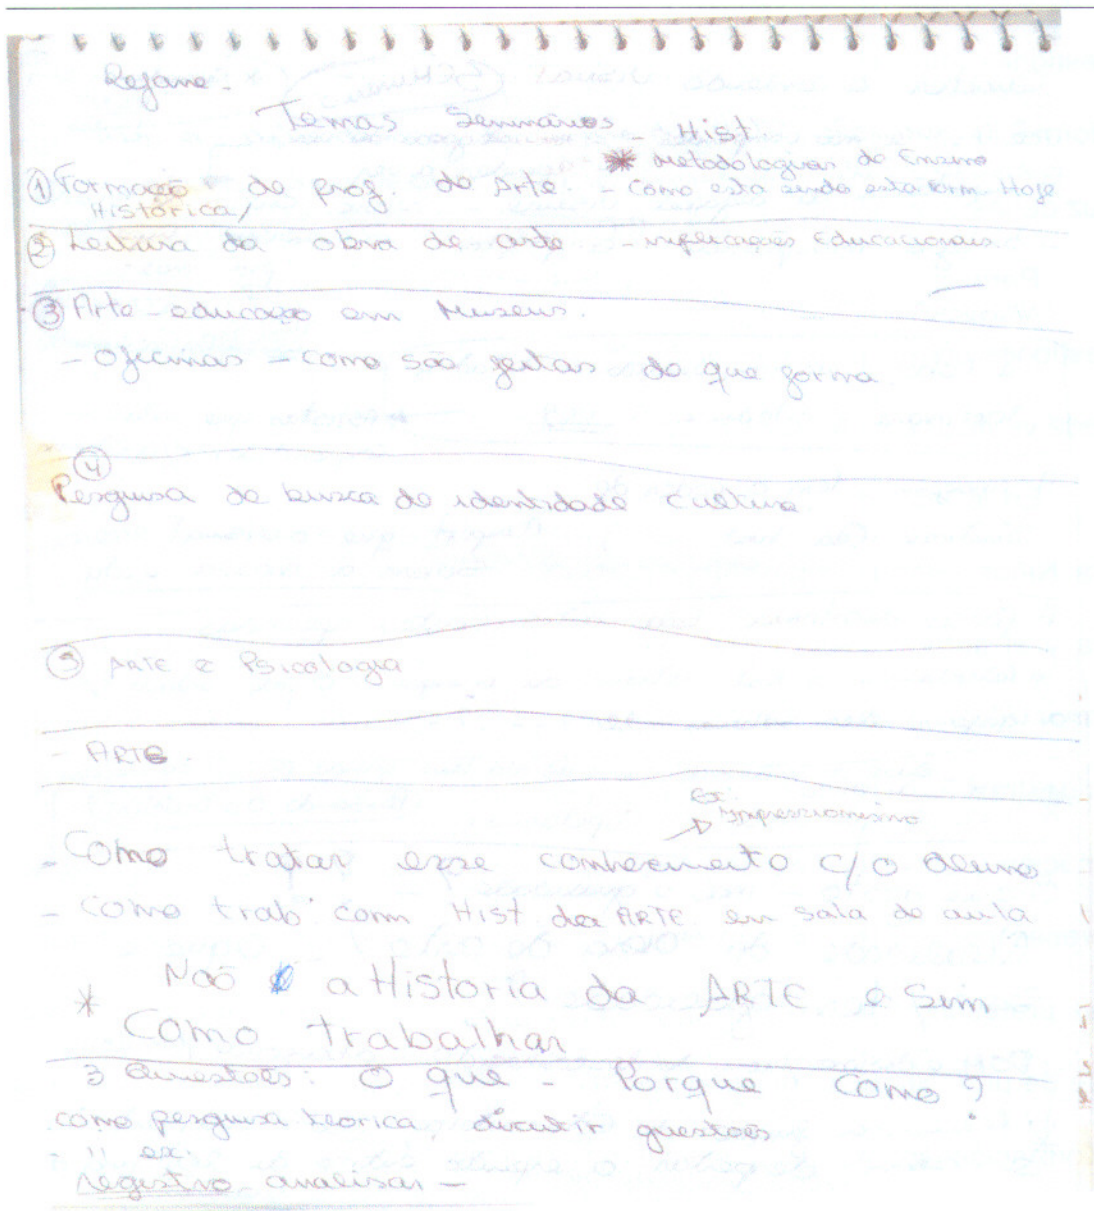 Rejane -
Temas Seminários Hist
* Metodologias do Ensino
① Formação de prof. de Arte - Como esta sendo esta form. Hoje
Histórica/
② Leitura da obra de arte - implicações Educacionais
③ Arte-educação em Museus.
- Oficinas - como são feitas de que forma
④
Pesquisa de busca de identidade Cultura
⑤ ARTE e Psicologia
- ARTE -
ex: impressionismo
- Como tratar esse conhecimento c/o aluno
- Como trab. com Hist da ARTE em sala de aula
* Não a Historia da ARTE e Sim
Como trabalhar
3 Questões: O que - Porque Como?
como pesquisa teorica, discutir questões
" ex:
registro - analisar -